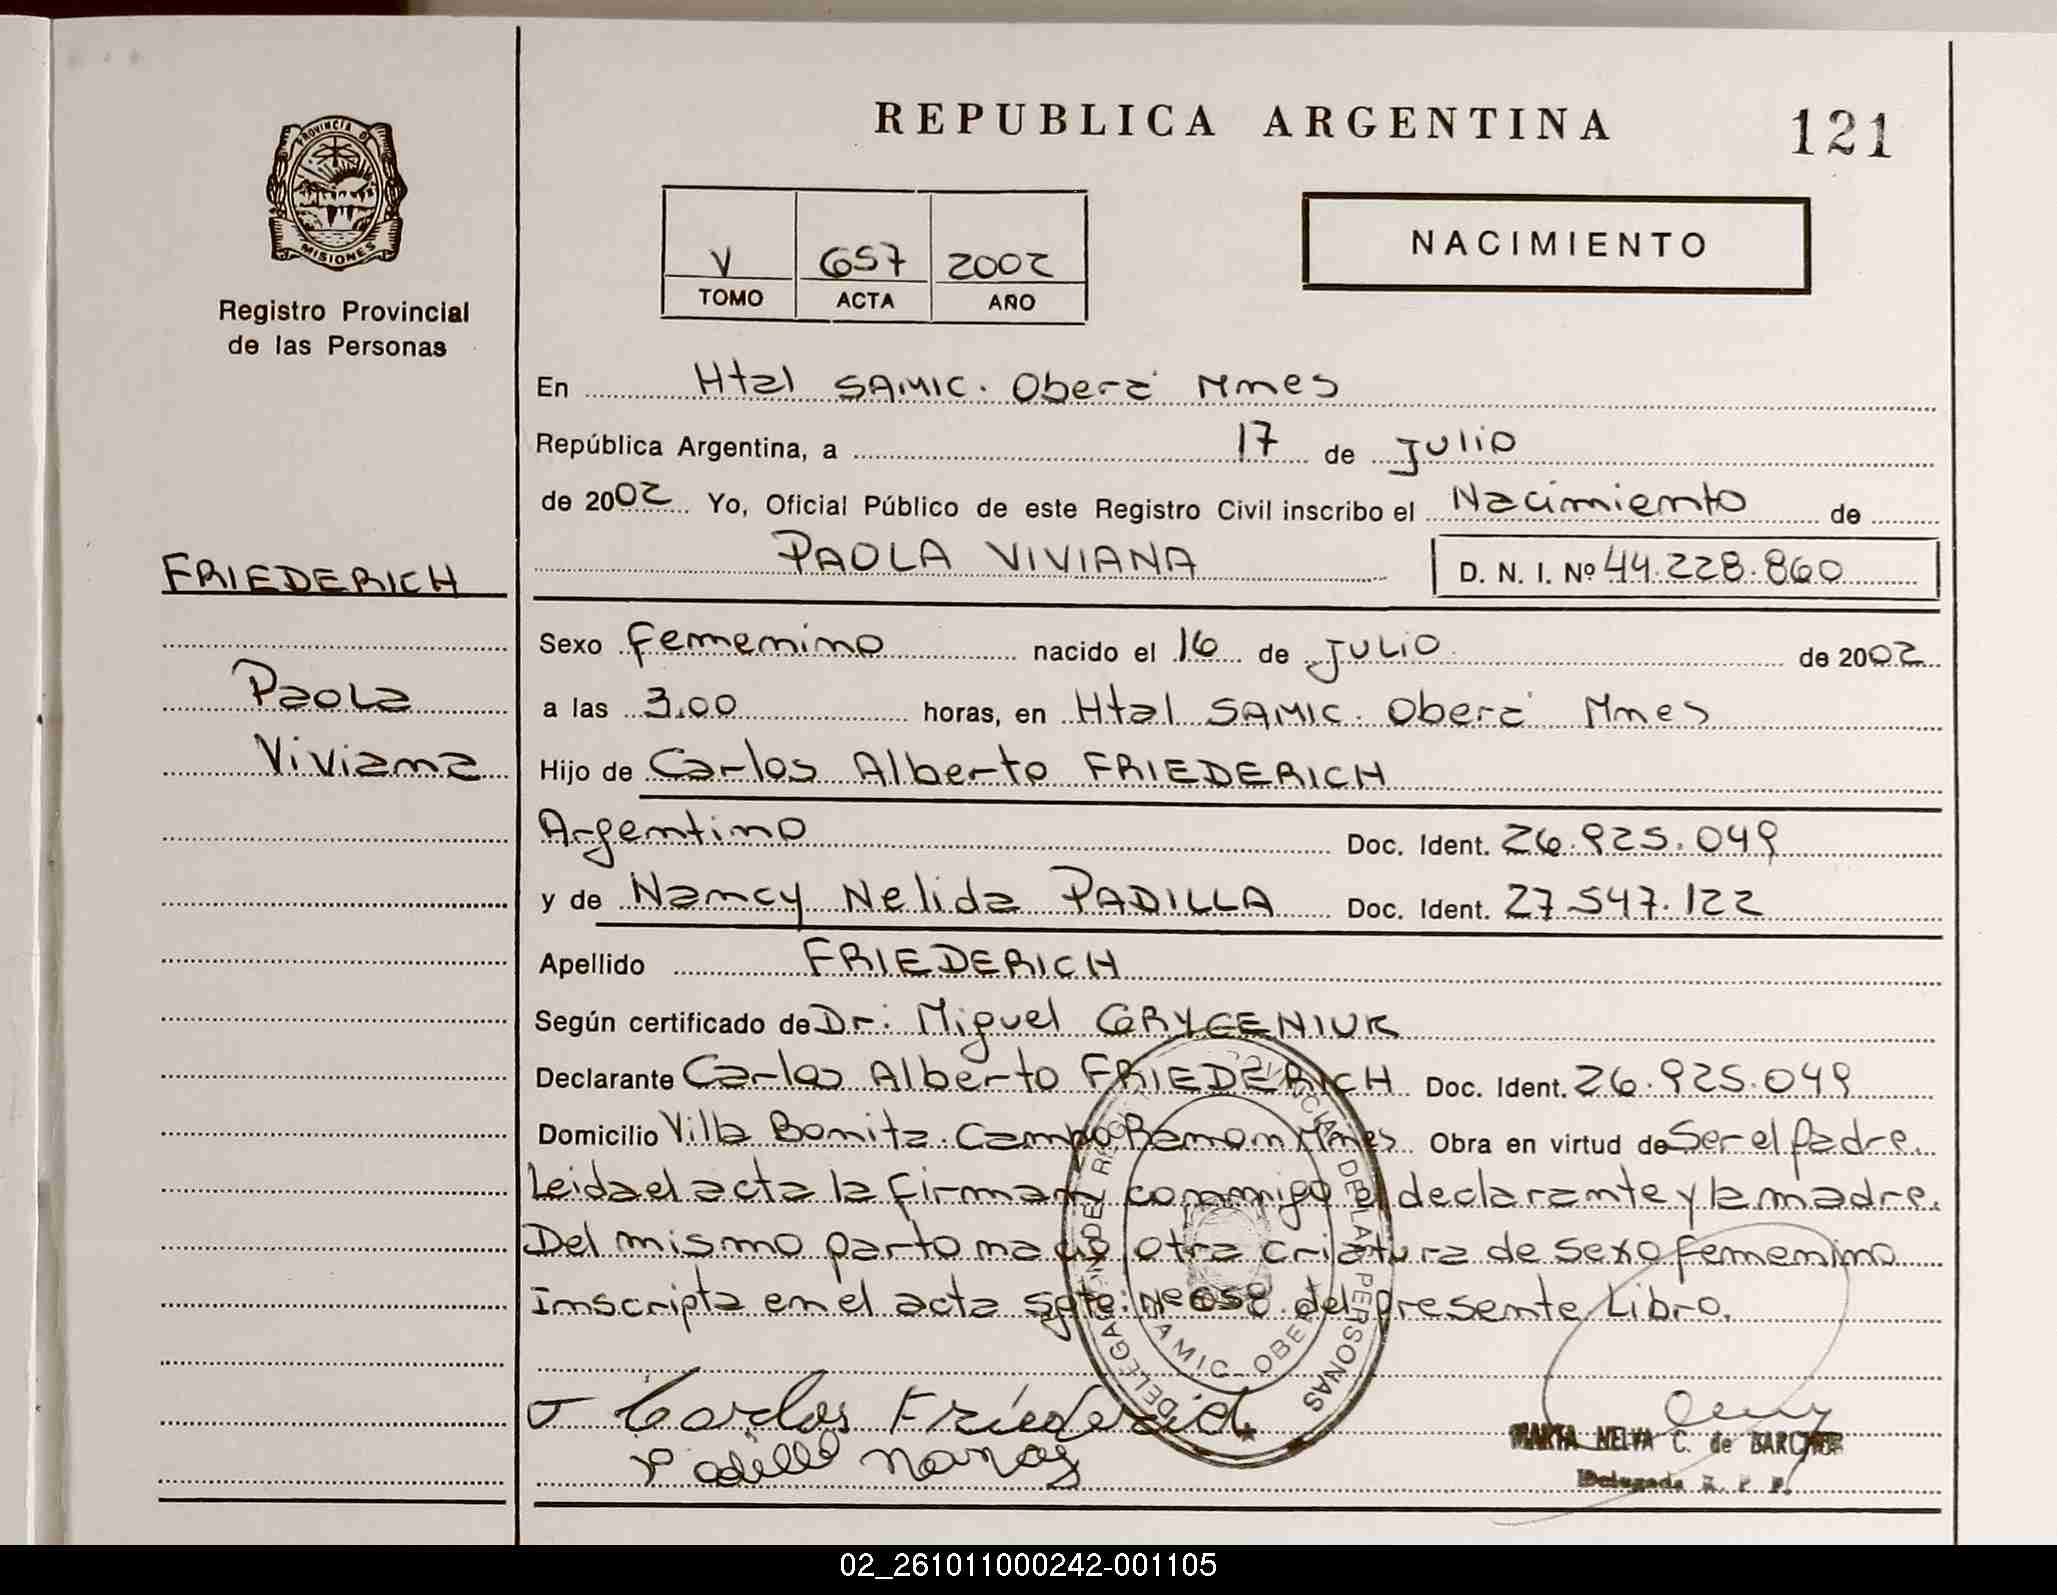 REPUBLICA ARGENTINA
121
PROVINCIA DE
MISIONES
Registro Provincial
de las Personas
V 657 2002
TOMO ACTA AÑO
NACIMIENTO
En Htal SAMIC. Oberá Mnes
República Argentina, a 17 de Julio
de 2002 Yo, Oficial Público de este Registro Civil inscribo el Nacimiento de
PAOLA VIVIANA D. N. I. Nº 44.228.860
FRIEDERICH
Paola
Viviana
Sexo Femenino nacido el 16 de JULIO de 2002
a las 3.00 horas, en Htal SAMIC. Oberá Mnes
Hijo de Carlos Alberto FRIEDERICH
Argentino Doc. Ident. 26.925.049
y de Nancy Nelida PADILLA Doc. Ident. 27.547.122
Apellido FRIEDERICH
Según certificado de Dr: Miguel GRYCENIUK
Declarante Carlos Alberto FRIEDERICH Doc. Ident. 26.925.049
Domicilio Villa Bonita. Campo Ramon Mnes Obra en virtud de Ser el Padre.
Leida el acta la firman conmigo el declarante y la madre.
Del mismo parto nacio otra criatura de sexo femenino
Inscripta en el acta sgte: Nº 658 del presente Libro.
Carlos Friederich
Padilla Nancy
MARTA NELVA C. de
Delegada R. P. P.
02_261011000242-001105